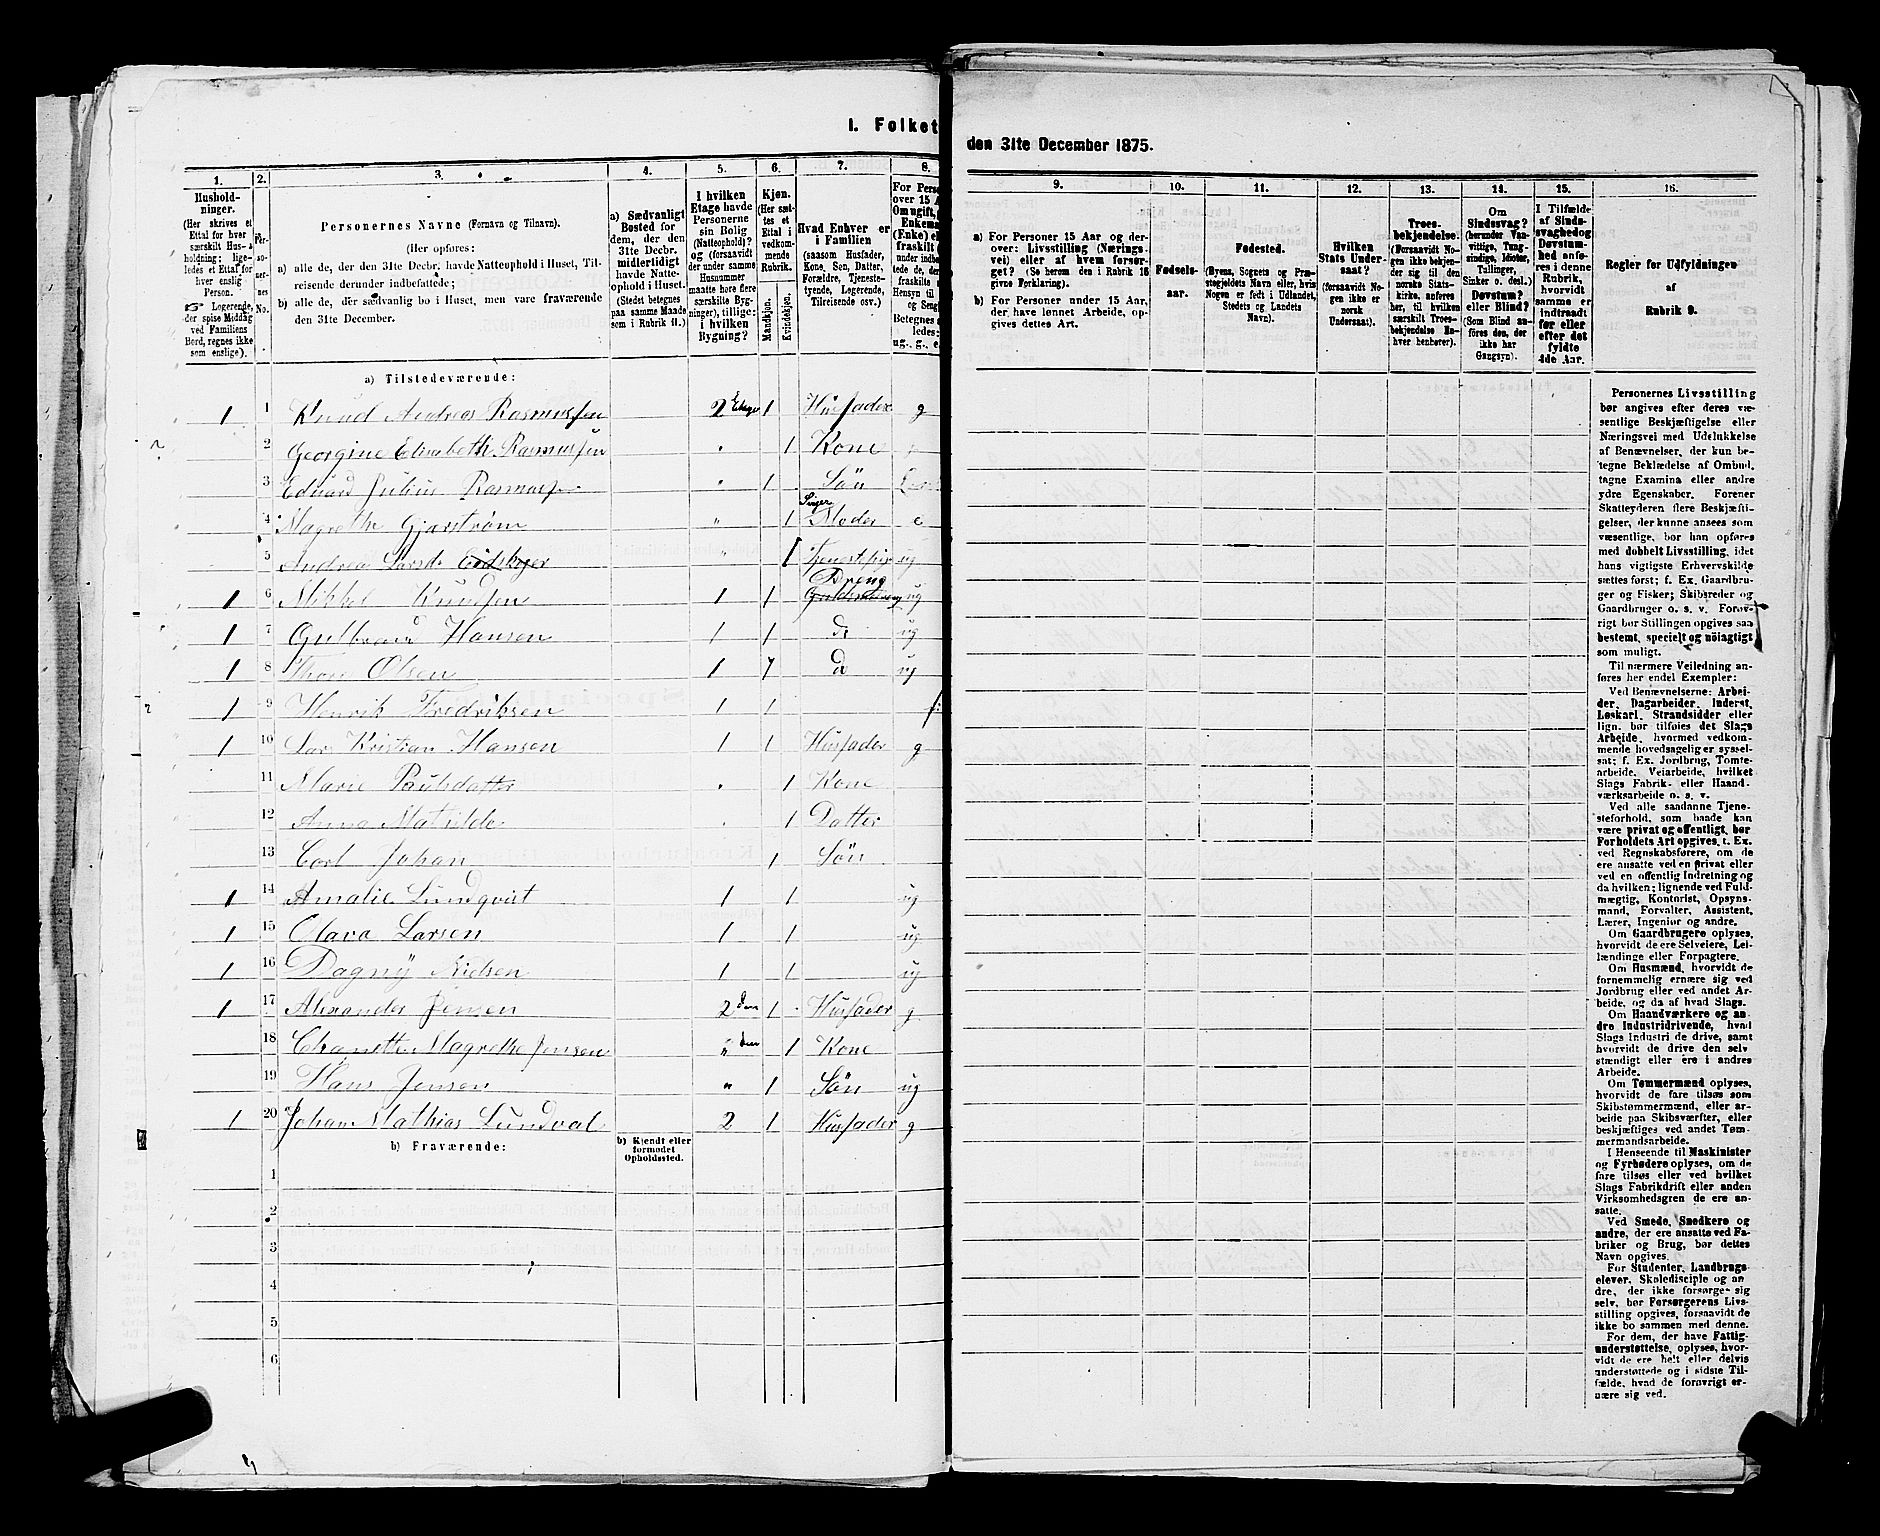 I. Folket
1.
2.
3.
4.
5.
6.
7.
8.
Hushold-
ninger.
(Her skrives et
Ettal for hver
særskilt Hus-
holdning; lige-
ledes et Ettal for
hver enslig
Person.
Logerende,
der spise Middag
ved Familiens
Bord, regnes ikke
som enslige).
Per-
soner-
nes
No.
Personernes Navne (Fornavn og Tilnavn).
(Her opføres:
a) alle de, der den 31te Decbr. havde Natteophold i Huset, Til-
reisende derunder indbefattede;
b) alle de, der sædvanlig bo i Huset, men vare fraværende
den 31te December.
a) Sædvanligt
Bosted for
dem, der den
31te Decbr.
midlertidigt
havde Natte-
ophold i Huset.
(Stedet betegnes
paa samme Maade
som i Rubrik 11.)
I hvilken
Etage havde
Personerne
sin Bolig
(Natteophold)?
og (forsaavidt
der under samme
Husnummer
maatte høre flere
særskilte Byg-
ninger), tillige:
i hvilken
Bygning?
Kjøn.
(Her sæt-
tes et
Ettal i
vedkom-
mende
Rubrik.
Mandkjøn.
Kvindekjøn.
Hvad Enhver er
i Familien
(saasom Husfader,
Kone, Søn, Datter,
Forældre, Tjeneste-
tyende, Logerende,
Tilreisende osv.)
For Perso
over 15 A
Om ugift,
Enkema
(Enke) el
fraskilt
a) Tilstedeværende:
1 1 Knud Andreas Rasmussen 2 Etage 1 Husfader g
2 Georgine Elisabeth Rasmussen " 1 Kone
3 Eduard Julius Rasmussen " 1 Søn
4 Magrethe Gjerstrøm " 1 Moder e
5 Andrea Larsd. Eidskoger " 1 Tjenestepige ug
1 6 Mikkel Knudsen 1 1 Dreng ug
1 7 Gulbrand Hansen 1 1 do ug
1 8 Thore Olsen 1 1 do ug
1 9 Henrik Fredriksen 1 1
1 10 Lars Kristian Hansen 1 1 Husfader g
11 Marie Paulsdatter " 1 Kone
12 Anna Matilde " 1 Datter
13 Carl Johan 1 Søn
1 14 Amalie Lundqvist 1 1 ug
1 15 Olava Larsen 1 1 ug
1 16 Dagny Nielsen 1 1 ug
1 17 Alexander Jensen 2 den 1 Husfader g
18 Chanette Magrethe Jensen " den 1 Kone
19 Hans Jensen " 1 Søn ug
1 20 Johan Mathias Lundval 2 1 Husfader g
b) Fraværende:
b) Kjendt eller
formodet
Opholdssted.
1
2
3
4
5
6
den 31te December 1875.
9.
10.
11.
12.
13.
14.
15.
16.
a) For Personer 15 Aar og der-
over: Livsstilling (Nærings-
vei) eller af hvem forsør-
get? (Se herom den i Rubrik 16
givne Forklaring).
b) For Personer under 15 Aar,
der have lønnet Arbeide, op-
gives dettes Art.
Fødsels-
aar.
Fødested.
(Byens, Sognets og Præ-
stegjeldets Navn eller, hvis
Nogen er født i Udlandet,
Stedets og Landets
Navn).
Hvilken
Stats Under-
saat?
(forsaavidt No-
gen ikke er
norsk
Undersaat).
Troes-
bekjendelse.
(Forsaavidt No-
gen ikke bekjen-
der sig til den
norske Stats-
kirke, anføres
her, til hvilken
særskilt Troes-
bekjendelse En-
hver henhører).
Om
Sindssvag?
(herunder Van-
vittige, Tung-
sindige, Idioter,
Tullinger,
Sinker o. desl.)
Døvstum?
eller Blind?
(Som Blind an-
føres den, der
ikke har
Gangsyn).
I Tilfælde
af Sinds-
svaghed og
Døvstum-
hed anfø-
res i denne
Rubrik,
hvorvidt
samme er
indtraadt
før eller
efter det
fyldte
4de Aar.
Regler for Udfyldningen
af
Rubrik 9.
Personernes Livsstilling
bør angives efter deres væ-
sentlige Beskjæftigelse eller
Næringsvei med Udelukkelse
af Benævnelser, der kun be-
tegne Beklædelse af Ombud,
tagne Examina eller andre
ydre Egenskaber. Forener
Skatteyderen flere Beskjæfti-
gelser, der kunne ansees som
væsentlige, bør han opføres
med dobbelt Livsstilling, idet
hans vigtigste Erhvervskilde
sættes først; f. Ex. Gaardbru-
ger og Fisker; Skibsreder og
Gaardbruger o. s. v. Forøv-
rigt bør Stillingen opgives saa
bestemt, specielt og nöiagtigt
som muligt.
Til nærmere Veiledning an-
føres her endel Exempler:
Ved Benævnelserne: Arbei-
der, Dagarbeider, Inderst,
Løskarl, Strandsidder eller
lign. bør tilføies det Slags
Arbeide, hvormed vedkom-
mende hovedsagelig er syssel-
sat; f. Ex. Jordbrug, Tomte-
arbeide, Veiarbeide, hvilket
Slags Fabrik- eller Haand-
værksarbeide o. s. v.
Ved alle saadanne Tjene-
steforhold, som baade kan
være privat og offentligt, bør
Forholdets Art opgives, t. Ex.
ved Regnskabsførere, om de
ere ansatte ved en privat eller
ved en offentlig Indretning og
da hvilken; lignende ved Fuld-
mægtig, Kontorist, Opsyns-
mand, Forvalter, Assistent,
Lærer, Ingeniør og andre.
Om Gaardbrugere oplyses,
hvorvidt de ere Selveiere, Lei-
lændinge eller Forpagtere.
Om Husmænd, hvorvidt de
fornemmelig ernære sig ved
Jordbrug eller ved andet Ar-
beide, og da af hvad Slags.
Om Haandværkere og an-
dre Industridrivende, hvad
Slags Industri de drive, samt
hvorvidt de drive den selv-
stændigt eller ere i andres
Arbeide.
Om Tømmermænd oplyses,
hvorvidt de fare tilsøs som
Skibstømmermænd, eller ar-
beide paa Skibsværfter, eller
beskjæftiges ved andet Tøm-
mermandsarbeide.
I Henseende til Maskinister
og Fyrbødere oplyses, om de
fare tilsøs eller ved hvilket
Slags Fabrikdrift eller anden
Virksomhedsgren de ere an-
satte.
Ved Smede, Snedkere og
andre, der ere ansatte ved Fa-
briker og Brug, bør dettes
Navn opgives.
For Studenter, Landbrugs-
elever, Skoledisciple og an-
dre, der ikke forsørge sig
selv, bør Forsørgerens Livs-
stilling opgives, forsaavidt de
ikke bo sammen med denne.
For dem, der have Fattig-
understøttelse, oplyses, hvor-
vidt de ere helt eller delvis
understøttede og i sidste Til-
fælde, hvad de forøvrigt er-
nære sig ved.